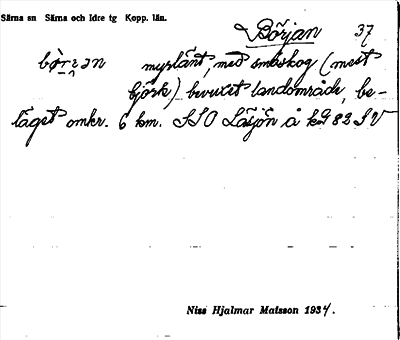 Särna sn Särna och Idre tg Kopp. län.
Början 37
myrlänt, med småskog (mest
björk) bevuxet landområde, be-
läget omkr. 6 km. SSO Låsjön å kbl 82 SV
Niss Hjalmar Matsson 1934.